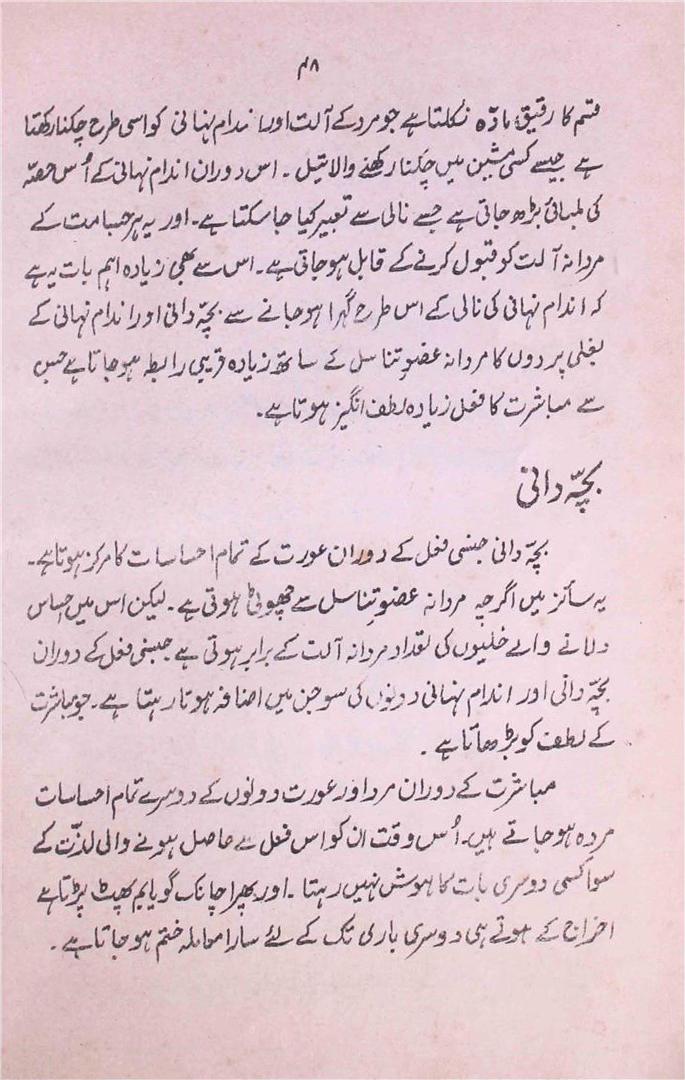 ۴۸
قسم کا رقیق مادّہ نکلتا ہے جو مرد کے آلت اور اندام نہانی کو اسی طرح چکنا رکھتا
ہے جیسے کسی مشین میں چکنا رکھنے والا تیل ۔ اس دوران اندام نہانی کے اُس حصّہ
کی لمبائی بڑھ جاتی ہے جسے نالی سے تعبیر کیا جا سکتا ہے۔ اور یہ ہر جسامت کے
مردانہ آلت کو قبول کرنے کے قابل ہو جاتی ہے۔ اس سے بھی زیادہ اہم بات یہ ہے
کہ اندام نہانی کی نالی کے اس طرح گہرا ہو جانے سے بچّہ دانی اور اندام نہانی کے
بغلی پردوں کا مردانہ عضوِ تناسل کے ساتھ زیادہ قریبی رابطہ ہو جاتا ہے جس
سے مباشرت کا فعل زیادہ لطف انگیز ہوتا ہے۔
بچّہ دانی
بچّہ دانی جنسی فعل کے دوران عورت کے تمام احساسات کا مرکز ہوتا ہے۔
یہ سائز میں اگرچہ مردانہ عضوِ تناسل سے چھوٹی ہوتی ہے۔ لیکن اس میں احساس
دلانے والے خلیوں کی تعداد مردانہ آلت کے برابر ہوتی ہے جنسی فعل کے دوران
بچّہ دانی اور اندام نہانی دونوں کی سوجن میں اضافہ ہوتا رہتا ہے۔ جو مباشرت
کے لطف کو بڑھاتا ہے ۔
مباشرت کے دوران مرد اور عورت دونوں کے دوسرے تمام احساسات
مردہ ہو جاتے ہیں۔ اُس وقت ان کو اس فعل سے حاصل ہونے والی لذّت کے
سوا کسی دوسری بات کا ہوش نہیں رہتا ۔ اور پھر اچانک گویا بم پھٹ پڑتا ہے
اخراج کے ہوتے ہی دوسری باری تک کے لئے سارا معاملہ ختم ہو جاتا ہے ۔